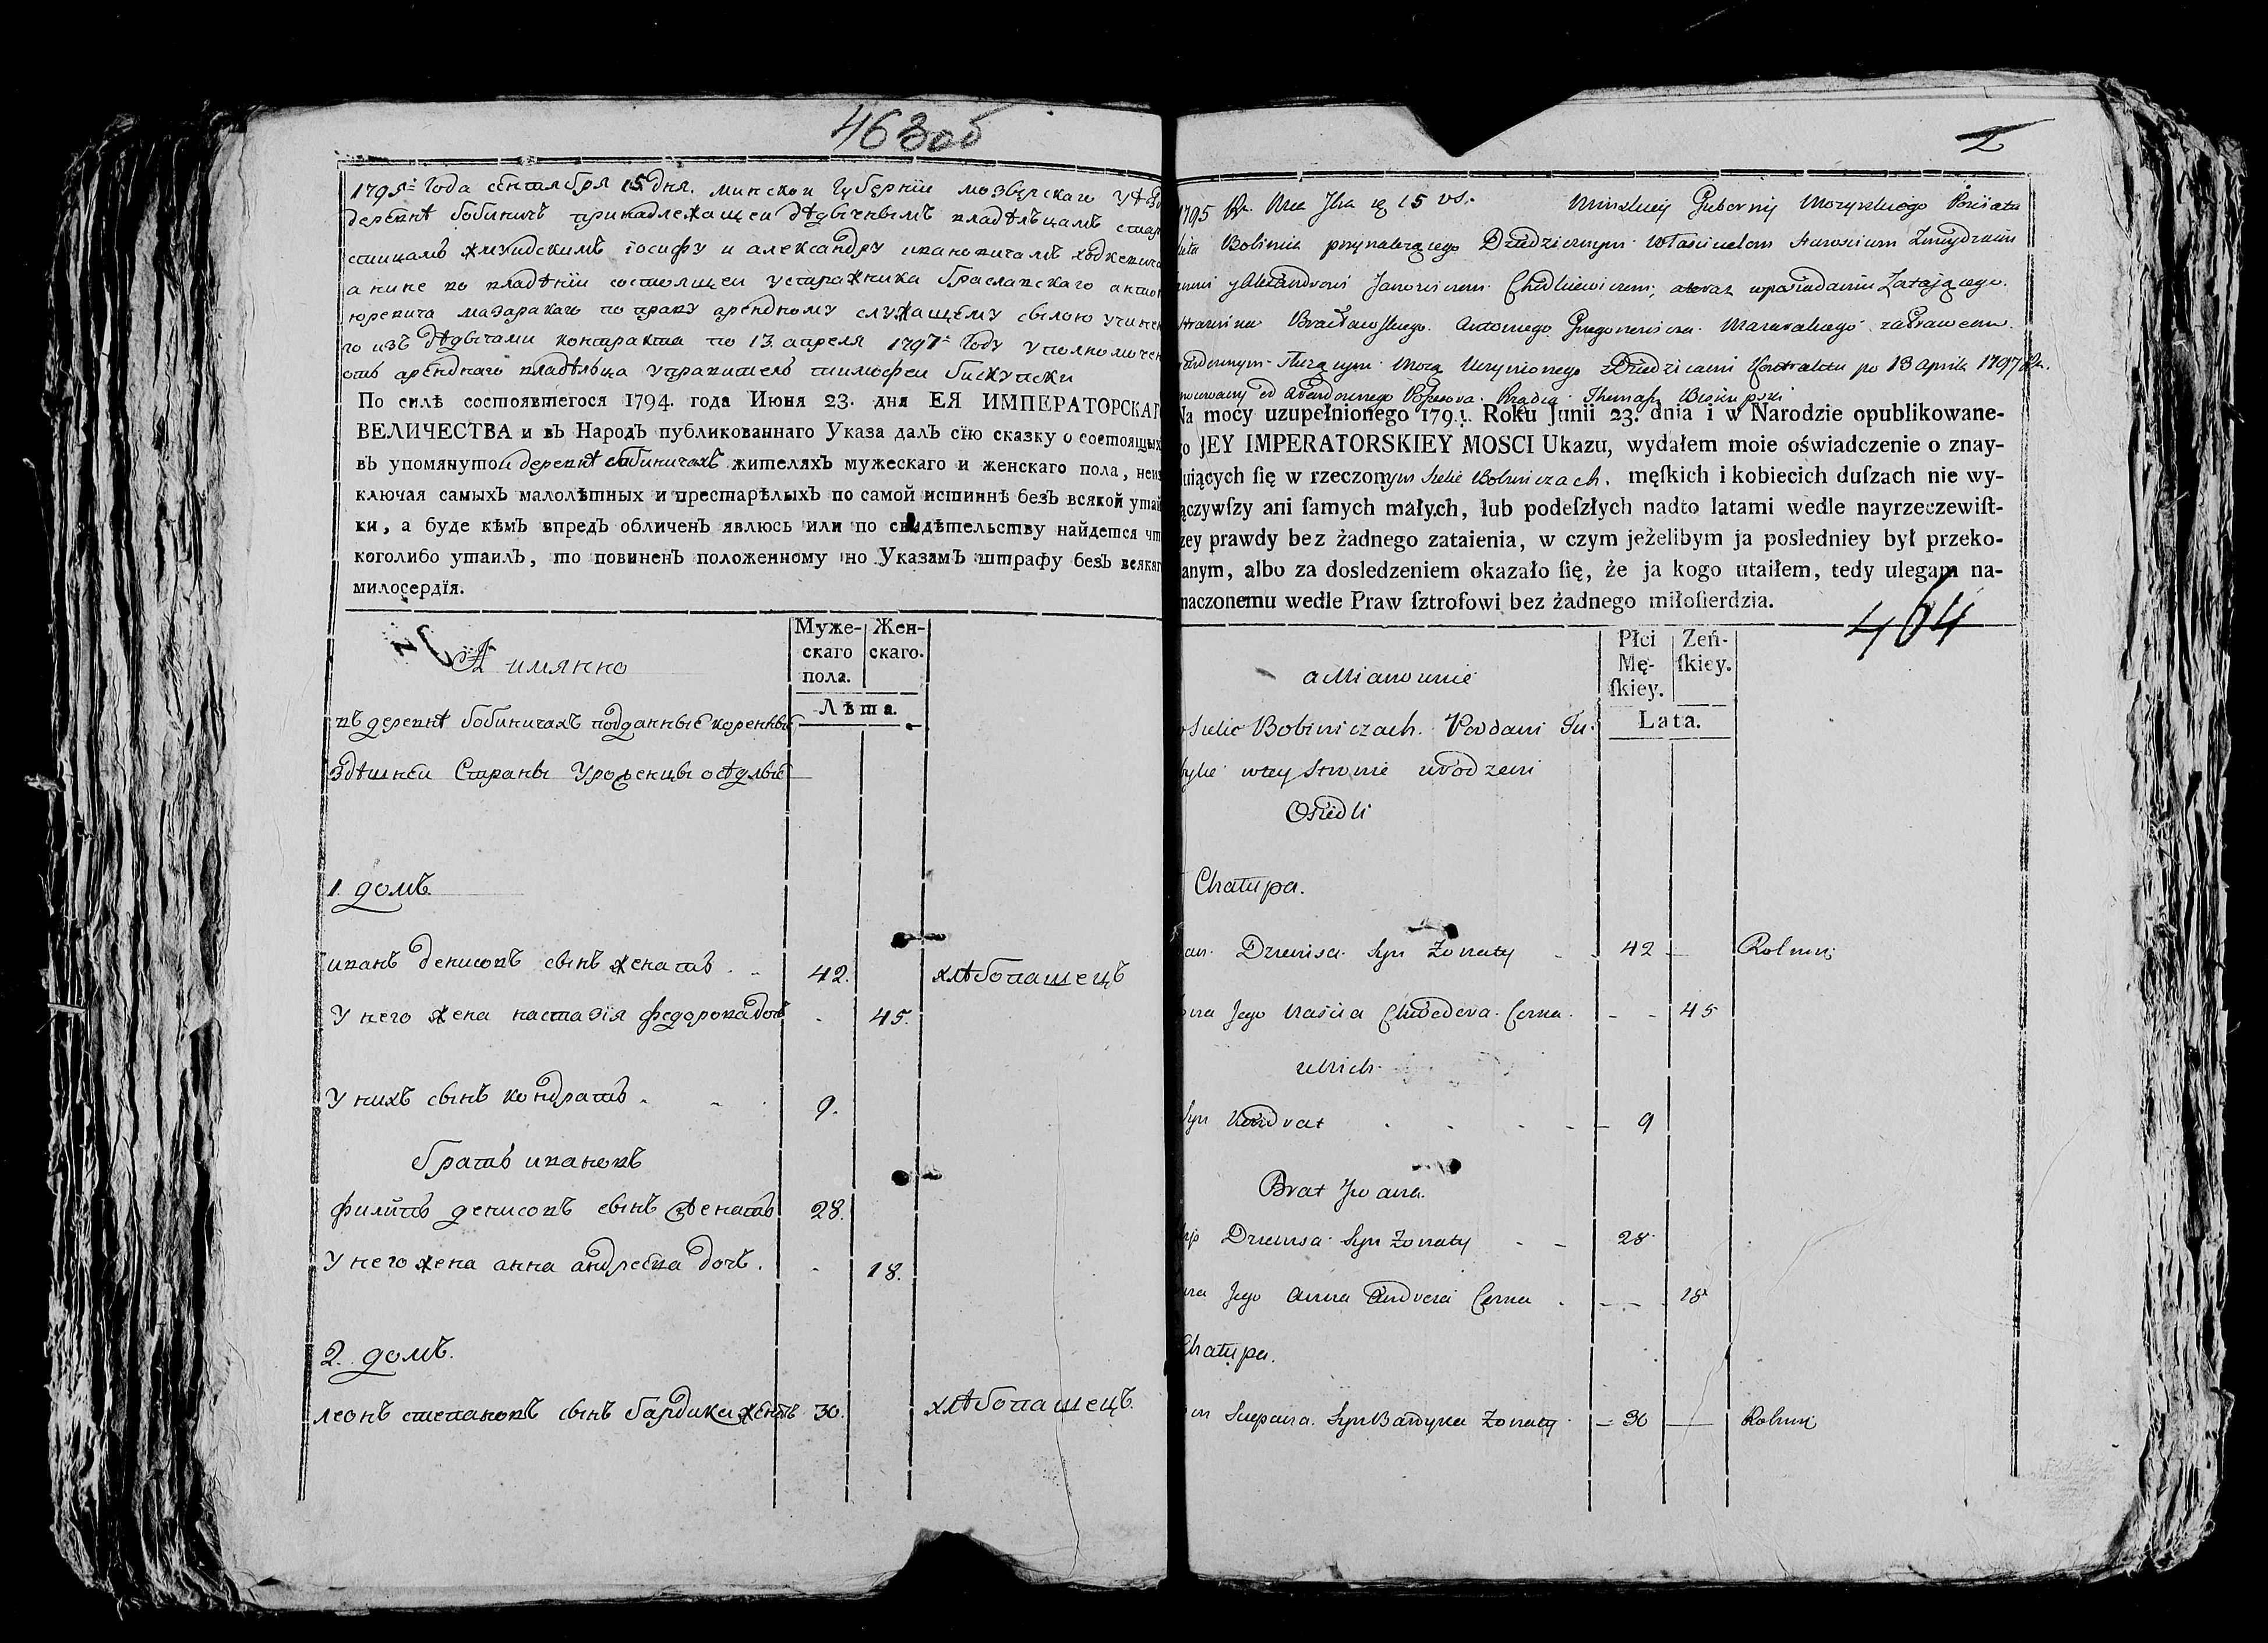 463 об
1795 года сентября 15 дня. минской губернїи мозырскаго уѣз
деревнѣ бобиничъ принадлежащей дѣдычнымъ владѣльцамъ стар
стицамъ жмуидскимъ іосифу и александру ивановичамъ ходкевича
а нине во владѣнїи состоящей устражника браславскаго антон
юревича мазаракаго по праву арендному служащему силою учинен
го изъ дѣдычами контракта по 13 апреля 1797 году уполномочен
отъ аренднаго владѣльца управитель тимофей бискупски
По силѣ состоявшегося 1794. года Июня 23. дня ЕЯ ИМПЕРАТОРСКАГ
ВЕЛИЧЕСТВА и въ Народъ публикованнаго Указа далъ сїю сказку о состоящыхъ
въ упомянутой деревнѣ бобиничахъ жителяхъ мужескаго и женскаго пола, неис
ключая самыхъ малолѣтных и престарѣлыхъ по самой истиннѣ безъ всякой утай
ки, а буде кѣмъ впредъ обличенъ явлюсь или по свидѣтельству найдется чт
коголибо утаилъ, то повиненъ положенному по Указамъ штрафу безъ всякаг
милосердїя.
А имянно
Муже-
скаго
пола.
Жен-
скаго.
Лѣта.
въ деревнѣ бобиничахъ подданные коренные
здѣшней страны уроженцы осѣдлые
1. домъ
иванъ денисовъ сынъ женатъ 42. хлѣбопашецъ
у него жена настазїя федорова дочь 45.
у нихъ сынъ кондратъ 9.
братъ ивановъ
филипъ денисовъ сынъ женатъ 28.
у него жена анна андреева дочь. 18.
2. домъ.
леонъ степановъ сынъ бардика женатъ 30. хлѣбопашецъ.
2
1795 15 Minskiey Gubernij Mozyrskiego Powiatu
Bobinicz przynależącego Dziedzicznym Właścicielom Starościcom Zmuydzkim
Alexandrowi Janowiczom Chodkiewiczom,
Bracławskiego Antoniego
Mocą Uczynionego z Dziedzicami Kontraktu po 13 Aprila 1797
od Rządca Biskupski
Na mocy uzupełnionego 1794. Roku Junii 23. dnia i w Narodzie opublikowane-
go JEY IMPERATORSKIEY MOSCI Ukazu, wydałem moie oświadczenie o znay-
duiących ſię w rzeczonym Siele Bobiniczach. męſkich i kobiecich duſzach nie wy-
ączywſzy ani ſamych małych, lub podeſzłych nadto latami wedle nayrzeczewiſt-
zey prawdy bez żadnego zataienia, w czym jeżelibym ja posledniey był przeko-
anym, albo za dosledzeniem okazało ſię, że ja kogo utaiłem, tedy ulegam na-
naczonemu wedle Praw ſztrofowi bez żadnego miłoſierdzia.
464
a Mianownie
Płci
Mę-
ſkiey.
Zeń-
ſkiey.
Lata.
Sielie Bobiniczach. Poddani Tu-
bylie wtey stronie urodzeni
Osiedli
Chałupa.
an. Dzienisa Syn Żonaty 42 Rolnik
ona Jego Naścia Chwedora Corka 45
unich
Syn Kondrat 9
Brat Jwana.
Dzienisa Syn Żonaty 28
Jego Anna Andreia Corka 18
Chałupa.
Sciepana Syn Bardyka Żonaty 30 Rolnik